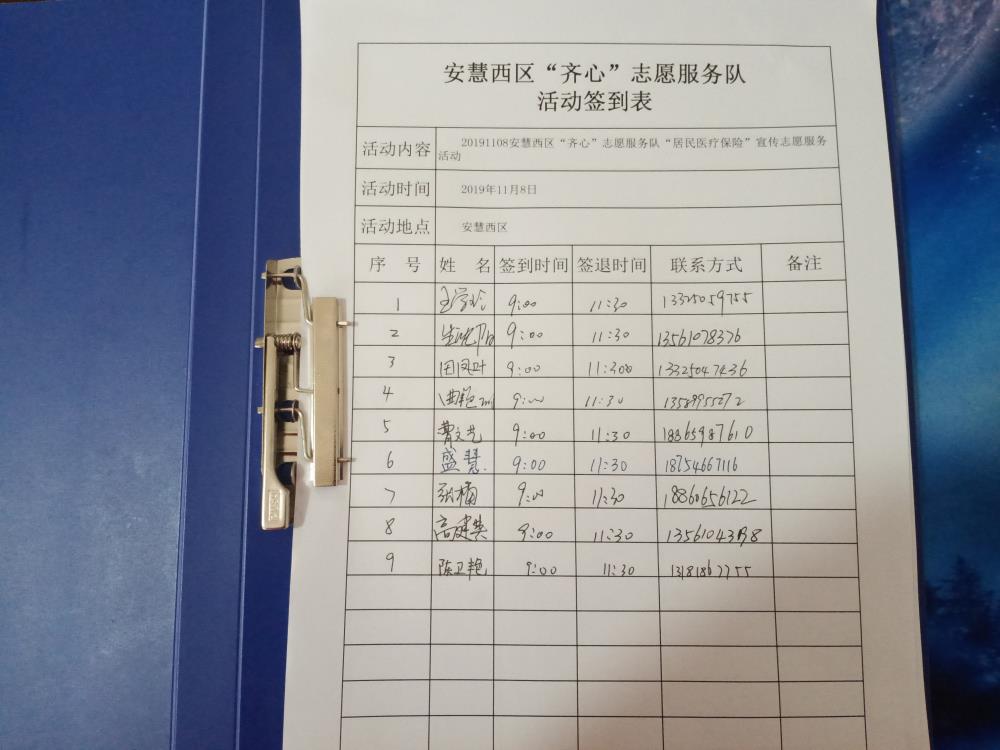 安慧西区“齐心”志愿服务队
活动签到表
活动内容 20191108安慧西区“齐心”志愿服务队“居民医疗保险”宣传志愿服务
活动
活动时间 2019年11月8日
活动地点 安慧西区
序 号 姓 名 签到时间 签退时间 联系方式 备注
1 9:00 11:30 13325059755
2 9:00 11:30 13561078376
3 田凤叶 9:00 11:300 13325047436
4 9:00 11:30
5 曹文艺 9:00 11:30 18865987610
6 盛慧 9:00 11:30 18754667116
7 张楠 9:00 11:30 18860656122
8 高建英 9:00 11:30
9 陈卫艳 9:00 11:30 13181867755